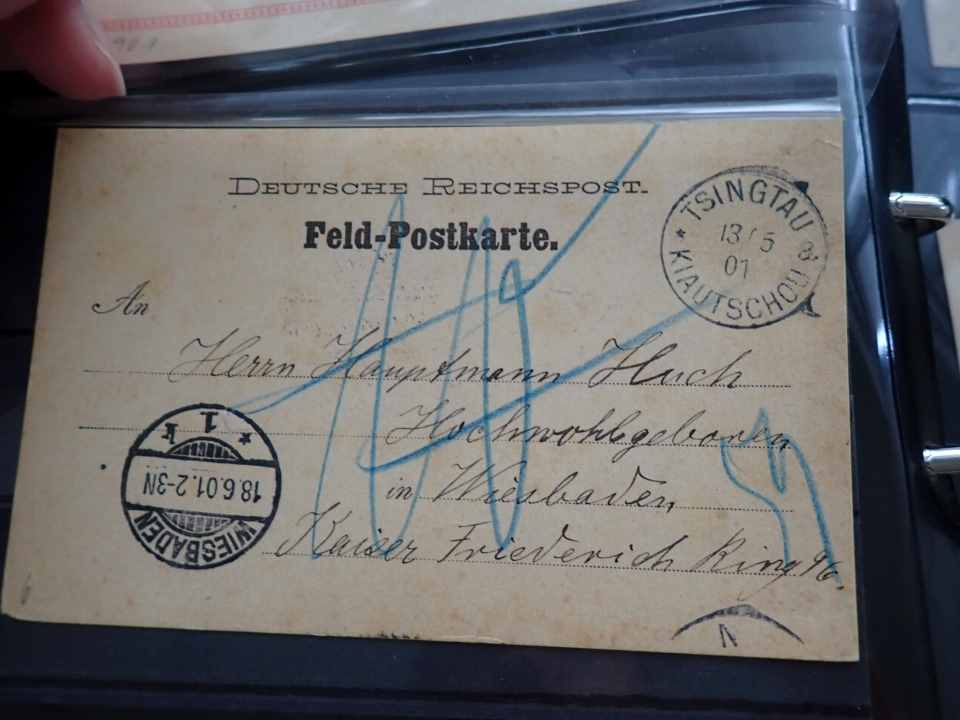 DEUTSCHE REICHSPOST.
Feld-Postkarte.
TSINGTAU
13/5
01
KIAUTSCHOU
An
Herrn Hauptmann Huch
Hochwohlgeboren
in Wiesbaden
Kaiser Friederich Ring 96.
* 1 k
18.6.01.2-3N
WIESBADEN